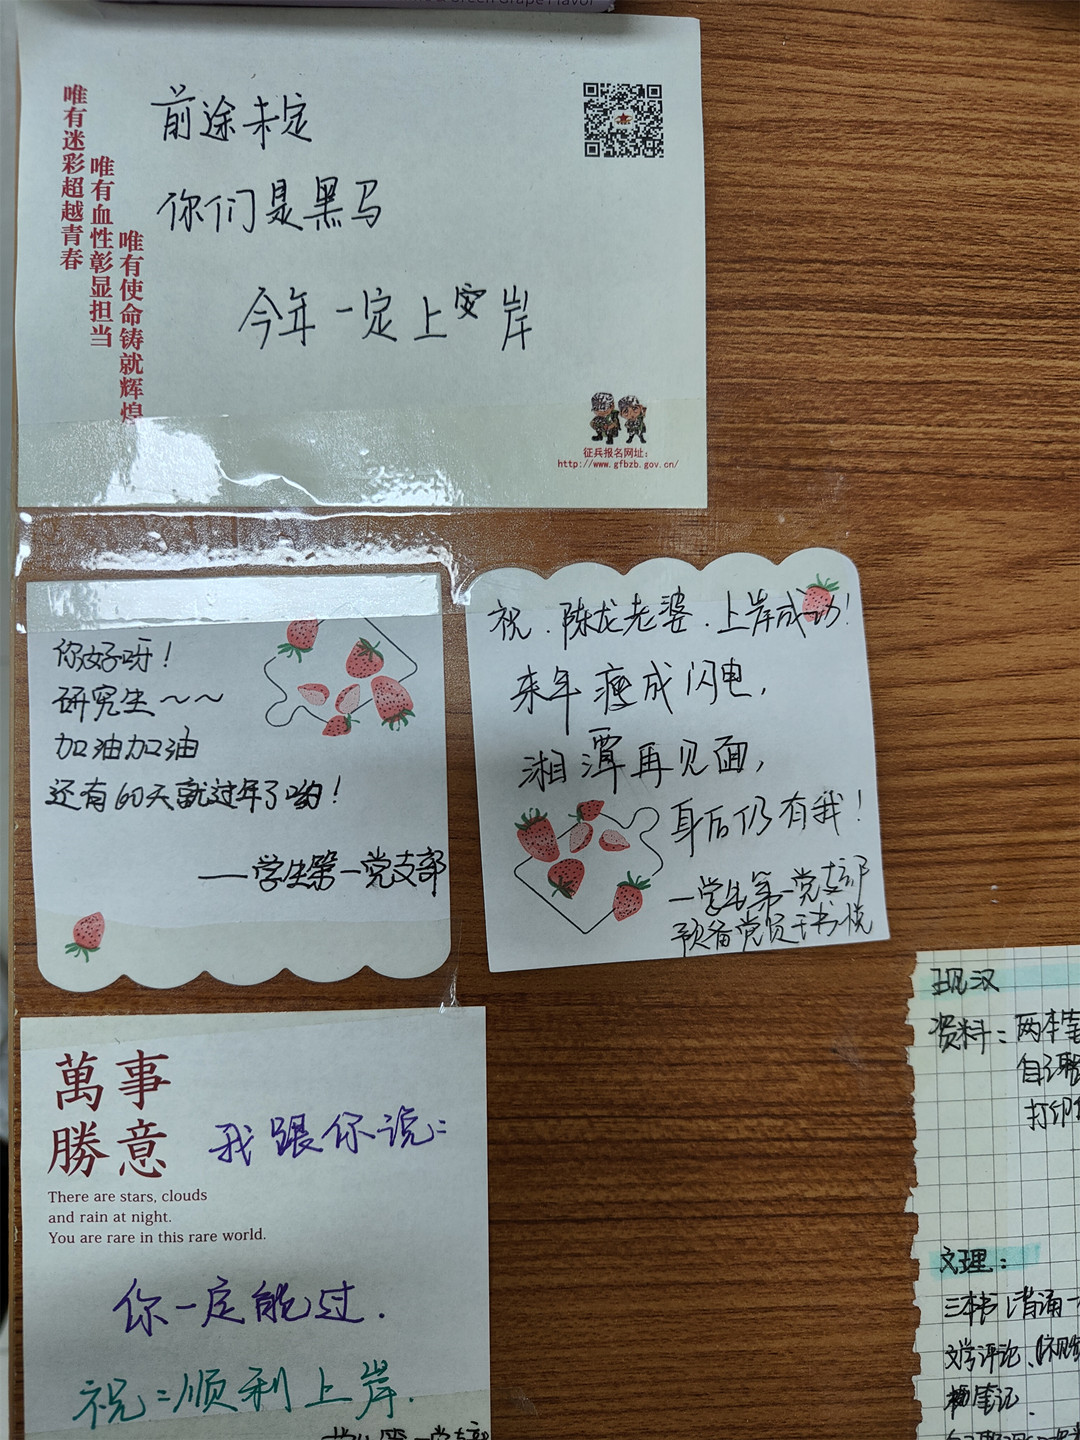 唯有迷彩超越青春
唯有血性彰显担当
唯有使命铸就辉煌
前途未定
你们是黑马
今年一定上安岸
征兵报名网址：
http://www.gfbzb.gov.cn/
你好呀！
研究生～～
加油加油
还有60天就过年了哟！
——学生第一党支部
祝.陈龙老婆.上岸成功！
来年瘦成闪电，
湘潭再见面，
身后仍有我！
—学生第一党支部
预备党员王书悦
萬事
勝意
There are stars, clouds
and rain at night.
You are rare in this rare world.
我跟你说：
你一定能过.
祝：顺利上岸.
现汉
资料：两本
自己
打印
文理：
三本书（背诵
文学评论、
笔记